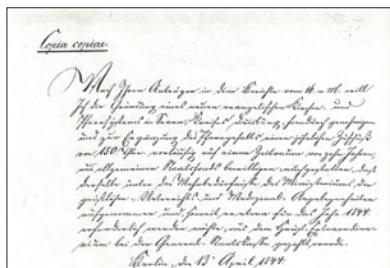 Copia copiae.
Nach Ihren Anträgen in dem Berichte vom 16. v. M. will
Ich die Gründung eines neuen evangelischen Kirchen- und
Pfarrsystems in Kreise Duisburg, hierdurch genehmigen
und zur Ergänzung des Pfarrgehalts einen jährlichen Zuschuß
von 150 Thlr. vorläufig auf einen Zeitraum von zehn Jahren,
aus allgemeinen Staatsfonds bewilligen, daß
derselbe unter die Mehrbedürfnisse des Ministeriums der
geistlichen, Unterrichts- und Medizinal-Angelegenheiten
aufgenommen und, soweit er etwa für das Jahr 1844
erforderlich werden möchte, aus dem
bei der General-Staatskasse gezahlt werde.
Berlin, den 13. April 1844.